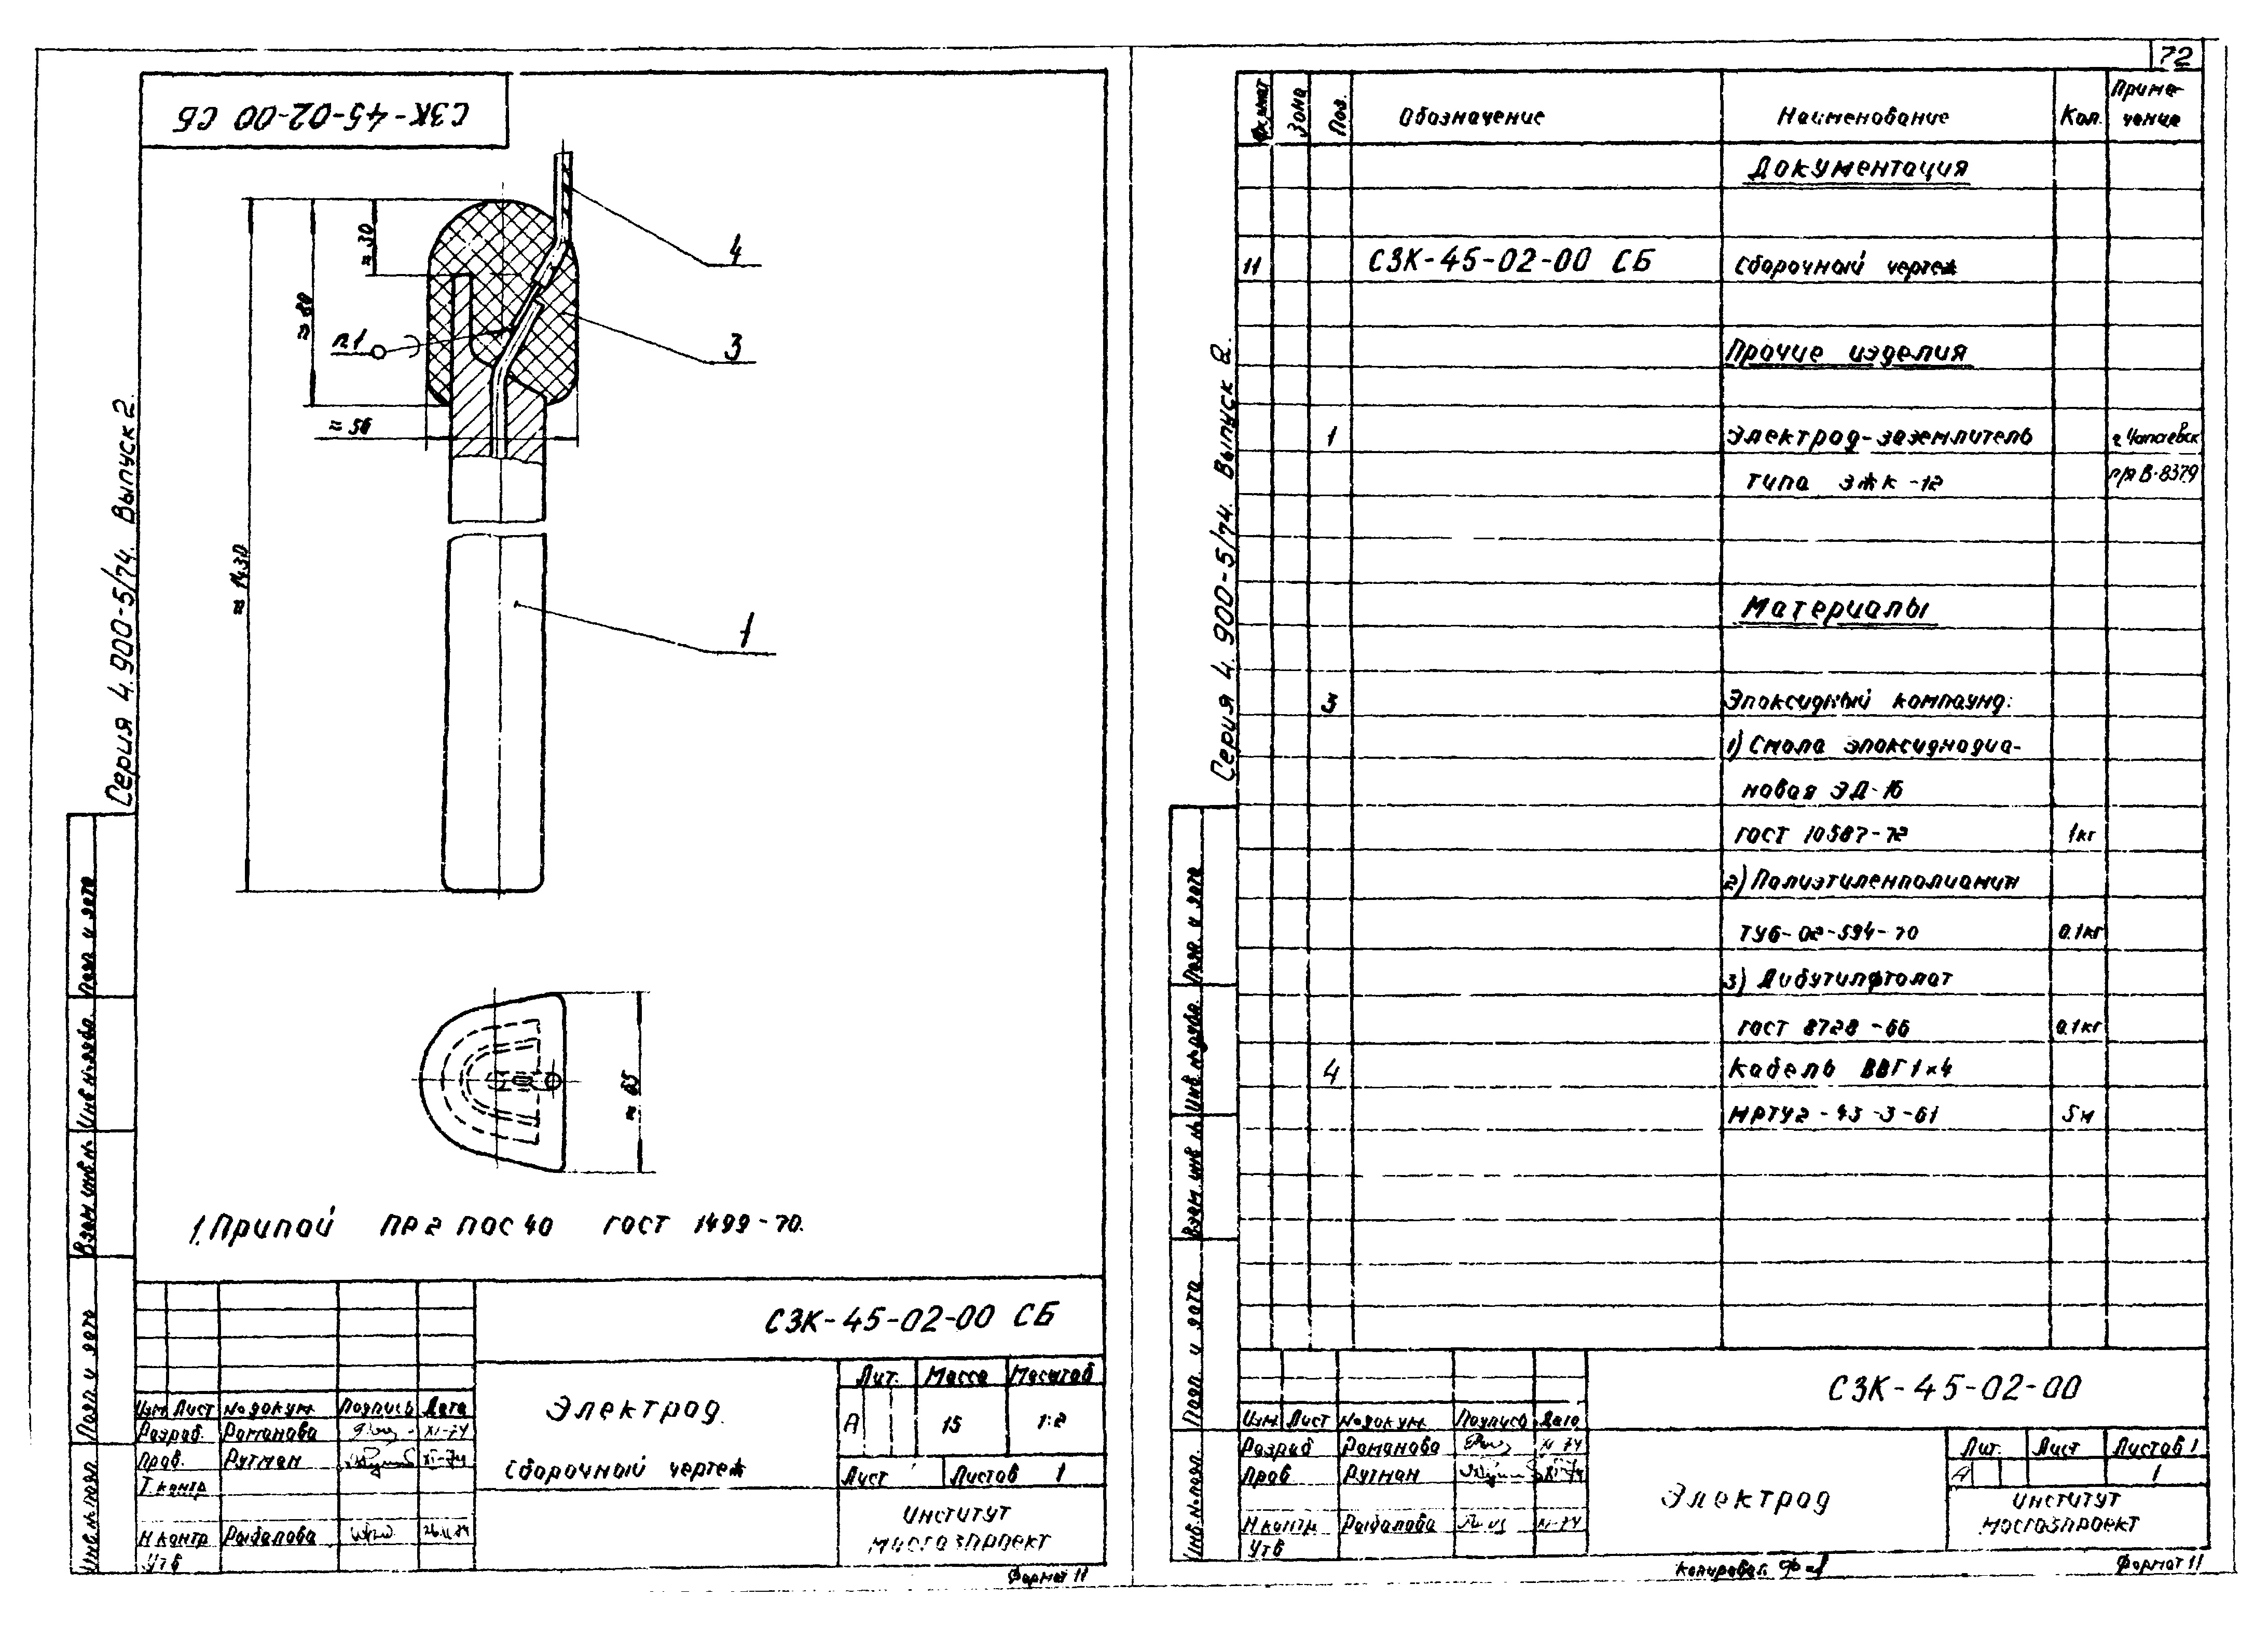 72
СЗК-45-02-00 СБ
4
≈30
≈80
п.1
3
≈56
≈1430
1
≈65
Серия 4.900-5/74. Выпуск 2.
1. Припой ПР2 ПОС 40 ГОСТ 1499-70.
Подп. и дата
Инв. № дубл.
Взам. инв. №
Подп. и дата
Инв. № подл.
СЗК-45-02-00 СБ
Лит. Масса Масштаб
Электрод.
А 15 1:2
Сборочный чертеж
Лист Листов 1
Институт
Мосгазпроект
Изм Лист № докум. Подпись Дата
Разраб. Романова XI-74
Пров. Рутман XI-74
Т. контр
Н. контр Рыбалова
Утв
Формат 11
Серия 4.900-5/74. Выпуск 2.
Формат Зона Поз. Обозначение Наименование Кол. Приме-
чание
Документация
11 СЗК-45-02-00 СБ Сборочный чертеж
Прочие изделия
1 Электрод-заземлитель г. Чапаевск
типа ЭЖК-12 п/я В-8379
Материалы
3 Эпоксидный компаунд:
1) Смола эпоксиднодиа-
новая ЭД-16
ГОСТ 10587-72 1кг
2) Полиэтиленполиамин
ТУ6-02-594-70 0.1кг
3) Дибутилфталат
ГОСТ 8728-66 0.1кг
4 Кабель ВВГ 1×4
МРТУ2-43-3-61 5м
Подп. и дата
Инв. № дубл.
Взам. инв. №
Подп. и дата
Инв. № подл.
СЗК-45-02-00
Изм Лист № докум. Подпись Дата
Разраб Романова XI-74
Пров Рутман XI-74
Н. контр. Рыбалова XI-74
Утв
Электрод
Лит. Лист Листов 1
А 1
Институт
Мосгазпроект
Копировал Формат 11